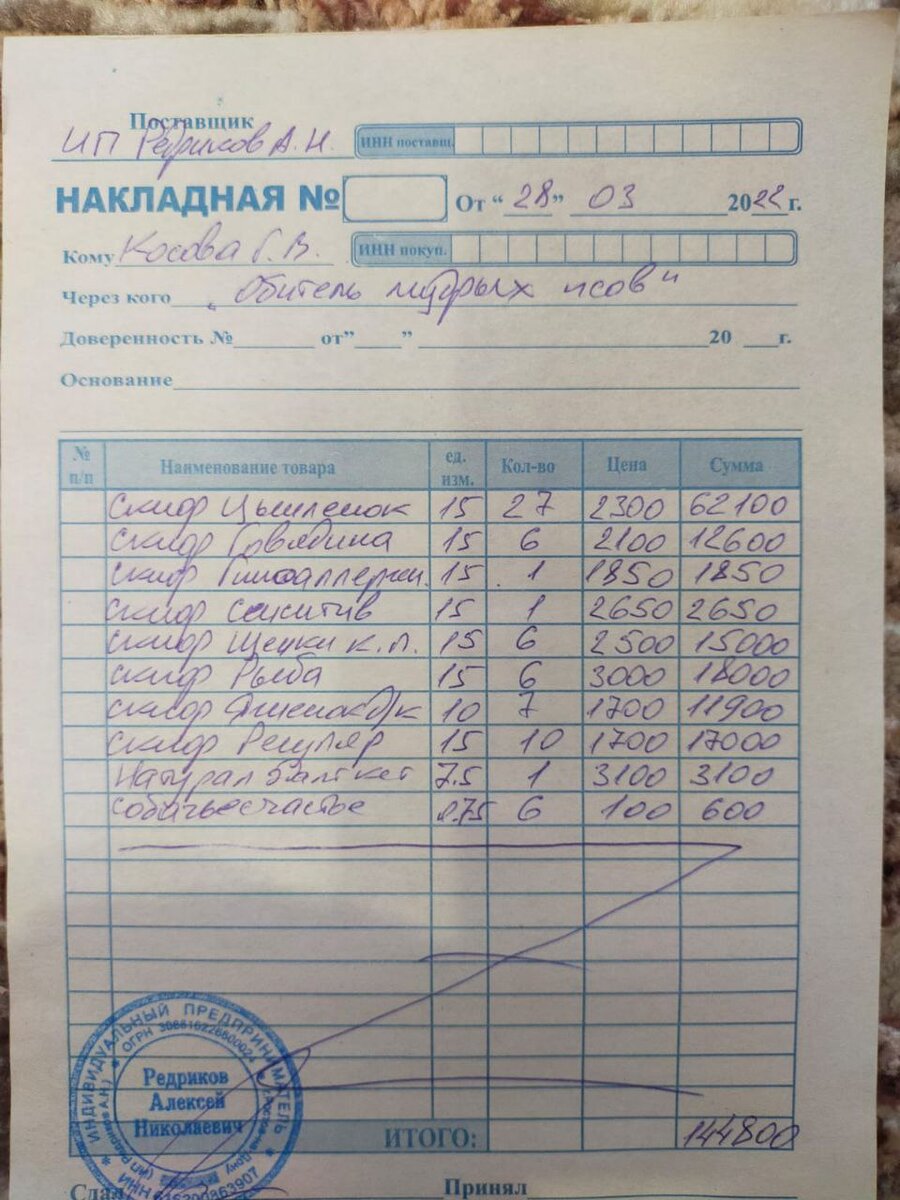 Поставщик
ИП Редриков А.Н. ИНН поставщ.
НАКЛАДНАЯ № От “28” 03 2022 г.
Кому Косова Г.В. ИНН покуп.
Через кого „Обитель мудрых псов"
Доверенность № от” ” 20 г.
Основание
№ п/п Наименование товара ед. изм. Кол-во Цена Сумма
Скиф Цыпленок 15 27 2300 62100
Скиф Говядина 15 6 2100 12600
Скиф Гипоаллерген. 15 1 1850 1850
Скиф Сенситив 15 1 2650 2650
Скиф Щенки к.п. 15 6 2500 15000
Скиф Рыба 15 6 3000 18000
Скиф 10 7 1700 11900
Скиф Регуляр 15 10 1700 17000
Натурал 7.5 1 3100 3100
Собачье счастье 0.75 6 100 600
ИТОГО: 144800
ИНДИВИДУАЛЬНЫЙ ПРЕДПРИНИМАТЕЛЬ
Редриков
Алексей
Николаевич
Сдал Принял